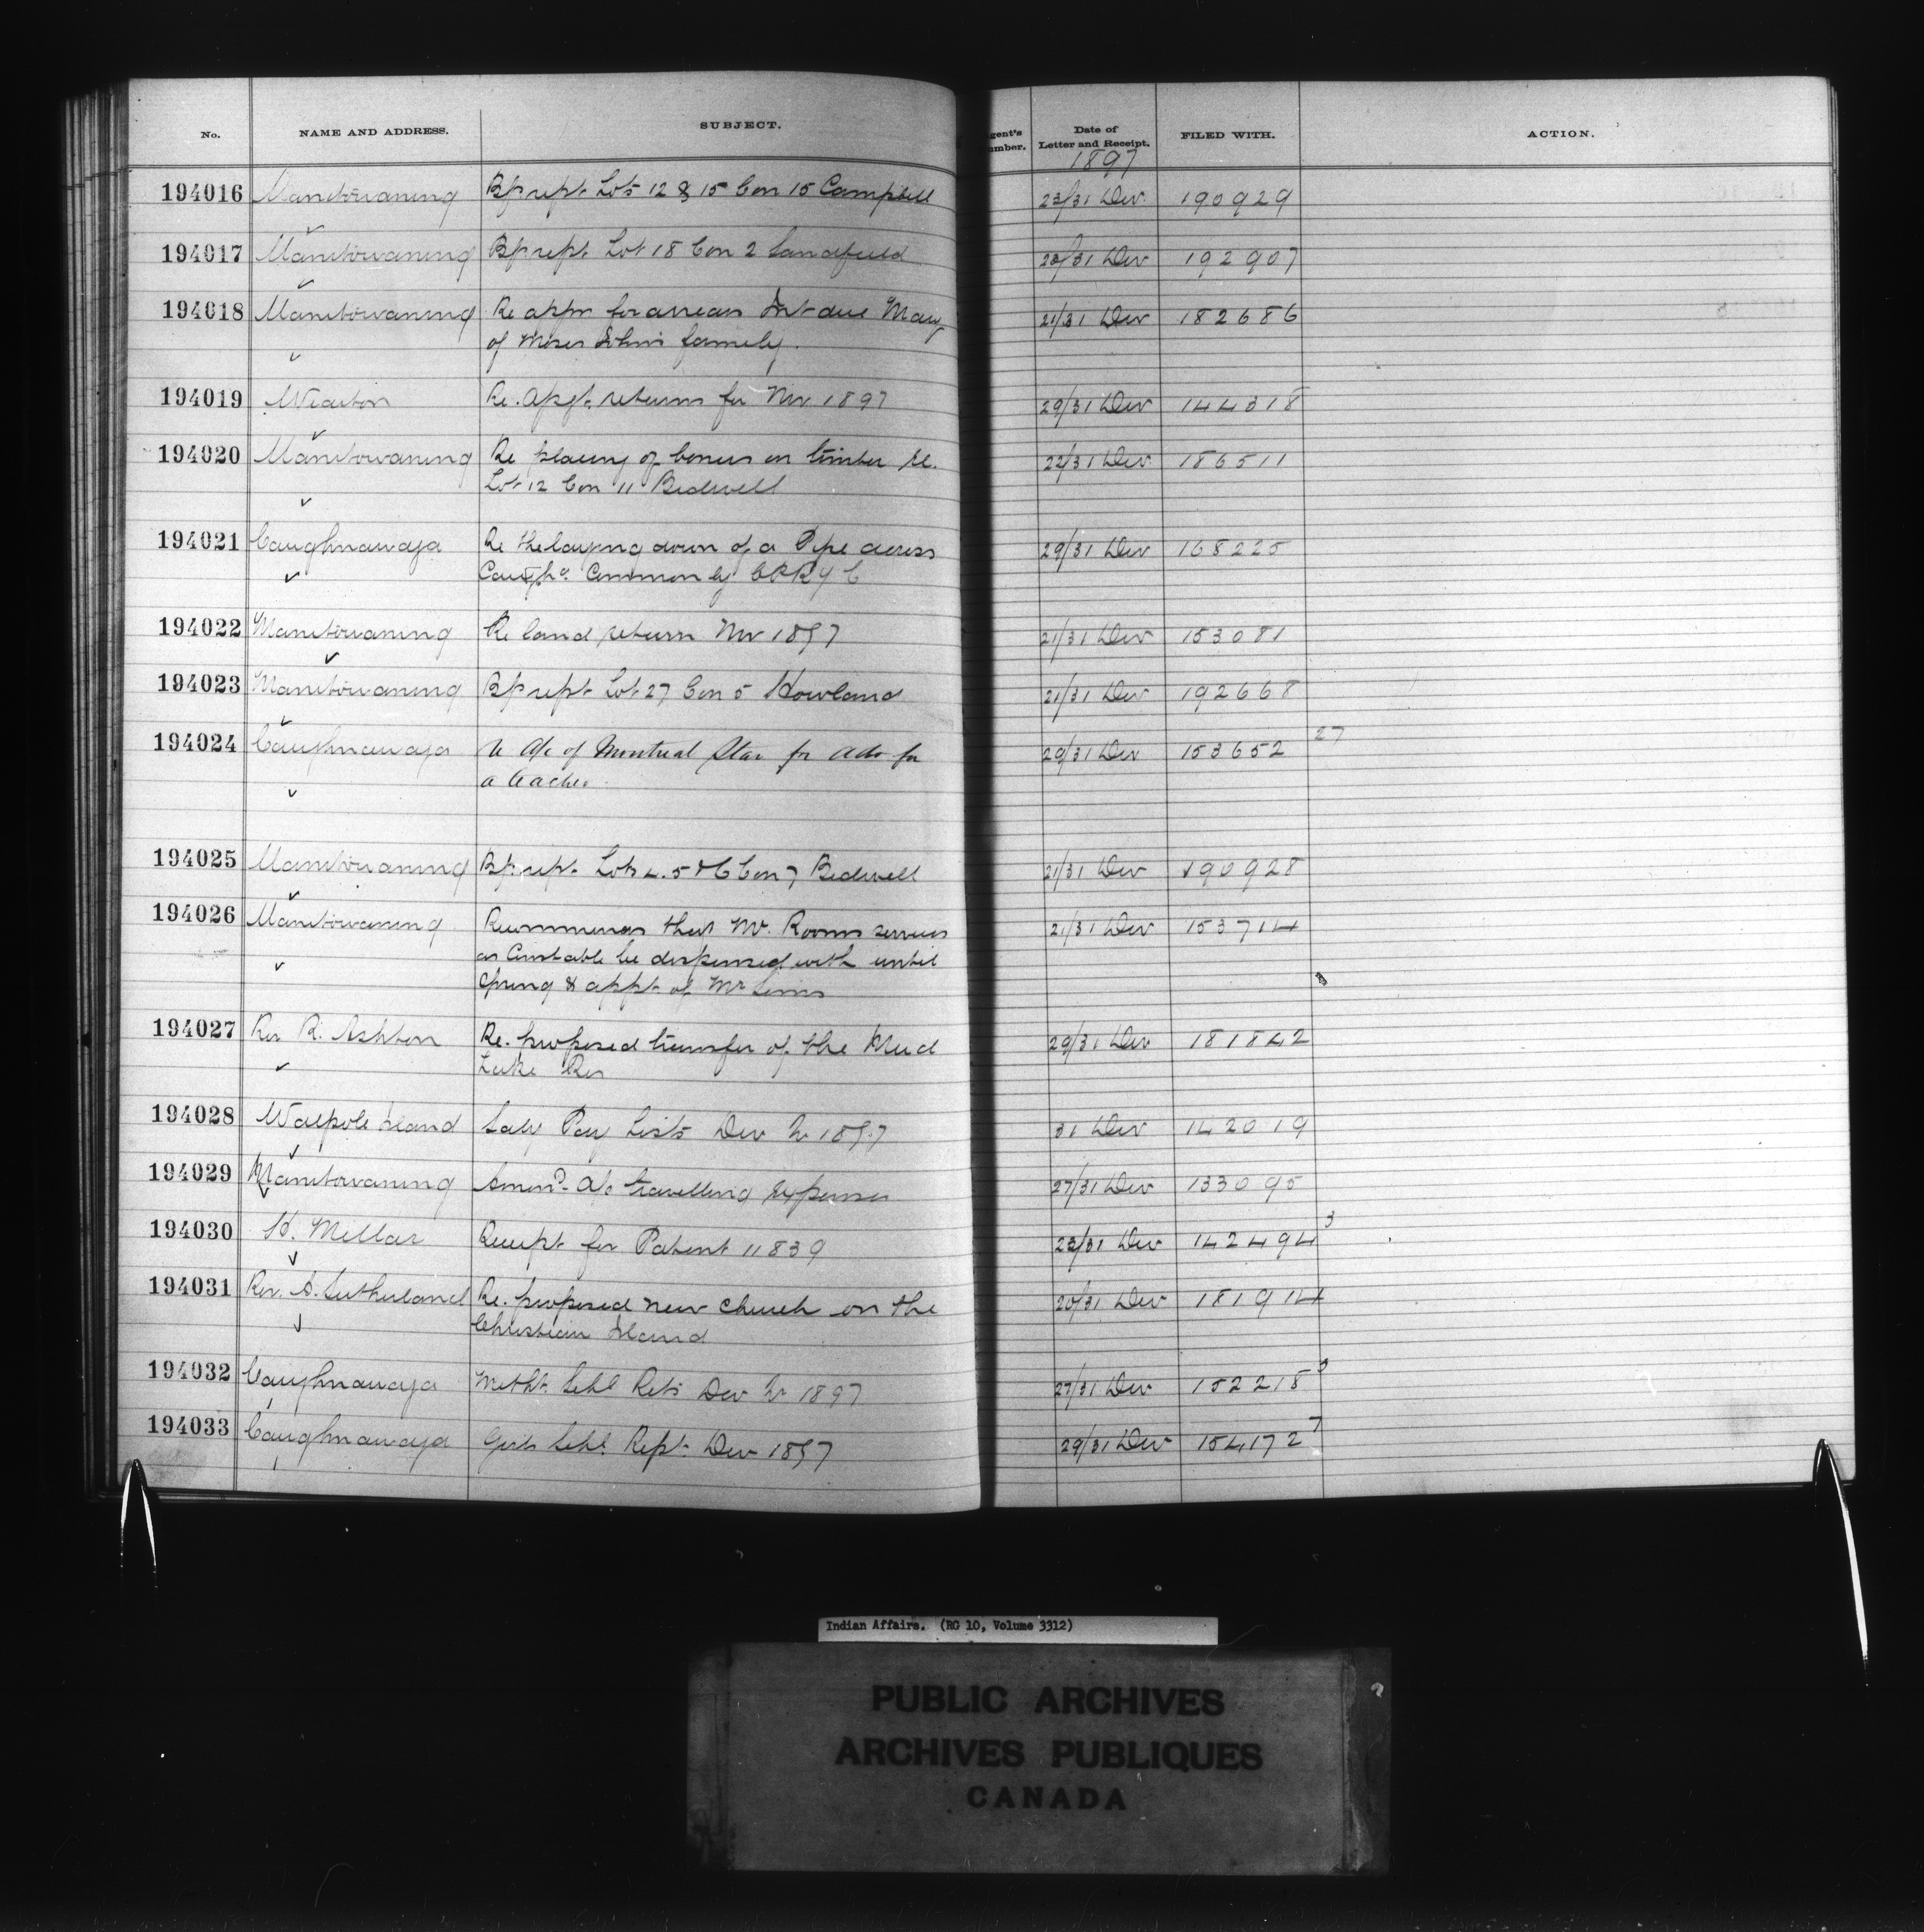 No. NAME AND ADDRESS. SUBJECT. gent's umber. Date of Letter and Receipt. FILED WITH. ACTION.
1897
194016 Manitowaning Bp rept. Lots 12 & 15 Con 15 Campbell 23/31 Dec 190929
194017 Manitowaning Bp rept. Lot 18 Con 2 Sandfield 23/31 Dec 192907
194018 Manitowaning Re appn for arrears Int due Mary 21/31 Dec 182686
of Moses John's family.
194019 Wiarton Re. Apgt. returns for Nov 1897 29/31 Dec 144318
194020 Manitowaning Re placing of bonus on timber re. 22/31 Dec 186511
Lot 12 Con 11 Bidwell
194021 Caughnawaga Re the laying down of a Pipe across 29/31 Dec 168225
Caugha Common by CPRy C
194022 Manitowaning Re land return Nov 1897 21/31 Dec 153081
194023 Manitowaning Bp rept. Lot 27 Con 5 Howland 21/31 Dec 192668
194024 Caughnawaga Re a/c of Montreal Star for adv for 29/31 Dec 153652 27
a teacher.
194025 Manitowaning Bp. rept. Lots 4. 5 & 6 Con 7 Bidwell 21/31 Dec 190928
194026 Manitowaning Recommends that Mr. Rooms services 21/31 Dec 153714
as Constable be dispensed with until
Spring & appt. of Mr Sims
194027 Rev R. Ashton Re. proposed transfer of the Mud 29/31 Dec 181842
Lake Res
194028 Walpole Island Saly Pay Lists Dec Qr 1897 31 Dec 142019
194029 Manitowaning Amend. a/c travelling expenses 27/31 Dec 133095
194030 H. Mellar Receipt for Patent 11839 23/31 Dec 142494 3
194031 Rev. A. Sutherland Re. proposed new church on the 20/31 Dec 181914
Christian Island
194032 Caughnawaga Metht. Schl Rets Dec Qr 1897 27/31 Dec 152218 3
194033 Caughnawaga Girls Schl. Rept. Dec 1897 29/31 Dec 154172 7
Indian Affairs. (RG 10, Volume 3312)
PUBLIC ARCHIVES
ARCHIVES PUBLIQUES
CANADA